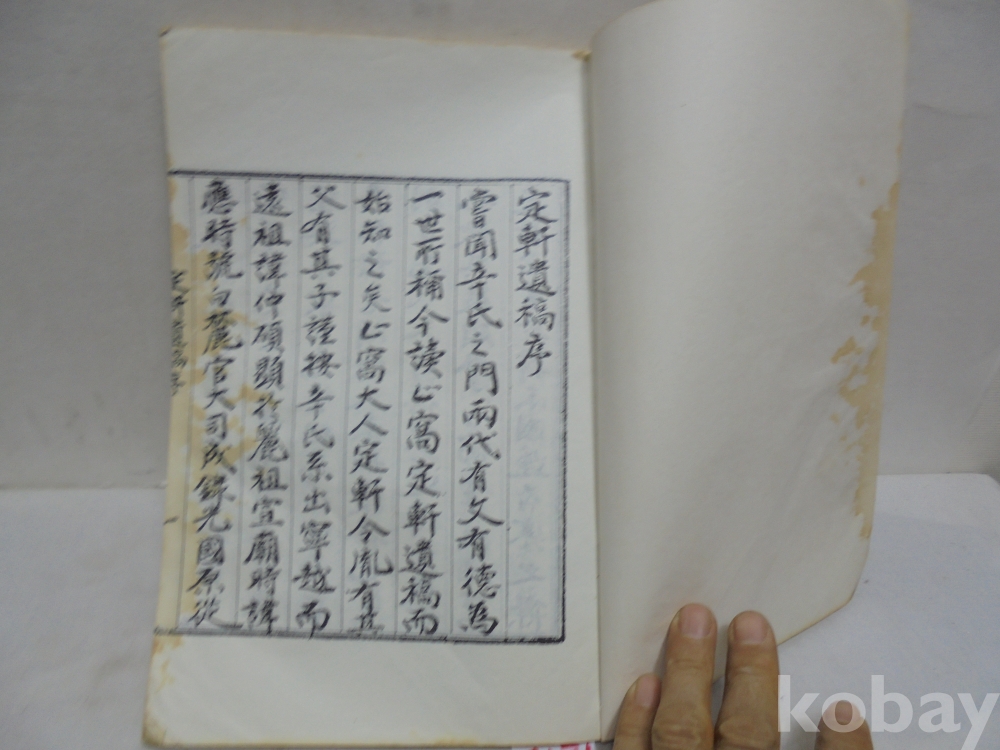 定軒遺稿序
嘗聞辛氏之門兩代有文有德為
一世所稱今讀心窩定軒遺稿而
始知之矣心窩大人定軒令胤有其
父有其子謹按辛氏系出寧越而
遠祖諱仲碩顯於麗祖宣廟時諱
應時號白麓官大司成錄光國原從
kobay